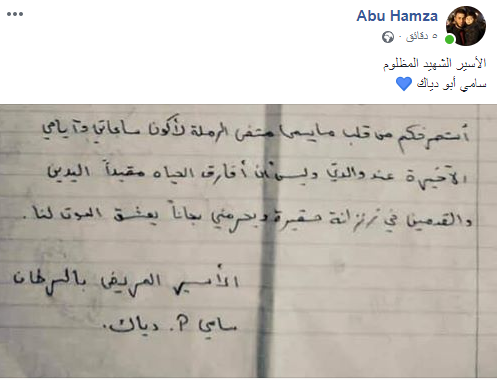 Abu Hamza
٥ دقائق ·
الأسير الشهيد المظلوم
سامي أبو دياك 💙
أستصرخكم من قلب مايسمى مشفى الرملة لأكون ساعاتي وآيامي
الآخيرة عند والدتي وليس أن أفارق الحياه مقيداً اليدين
والقدمين في زنزانة حقيرة وبحرمني سجاناً يعشق الموت لنا.
الأسير المريض بالسرطان
سامي P. دياك.